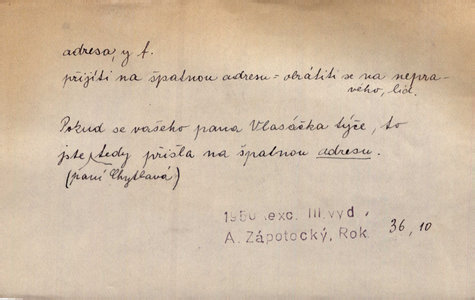 adresa, y f.
přijíti na špatnou adresu = obrátiti se na nepra-
vého, lid.
Pokud se vašeho pana Vlasáčka týče, to
jste tedy přišla na špatnou adresu.
(paní Chytlavá)
1950 .exc. III.vyd.
A. Zápotocký, Rok. 36, 10